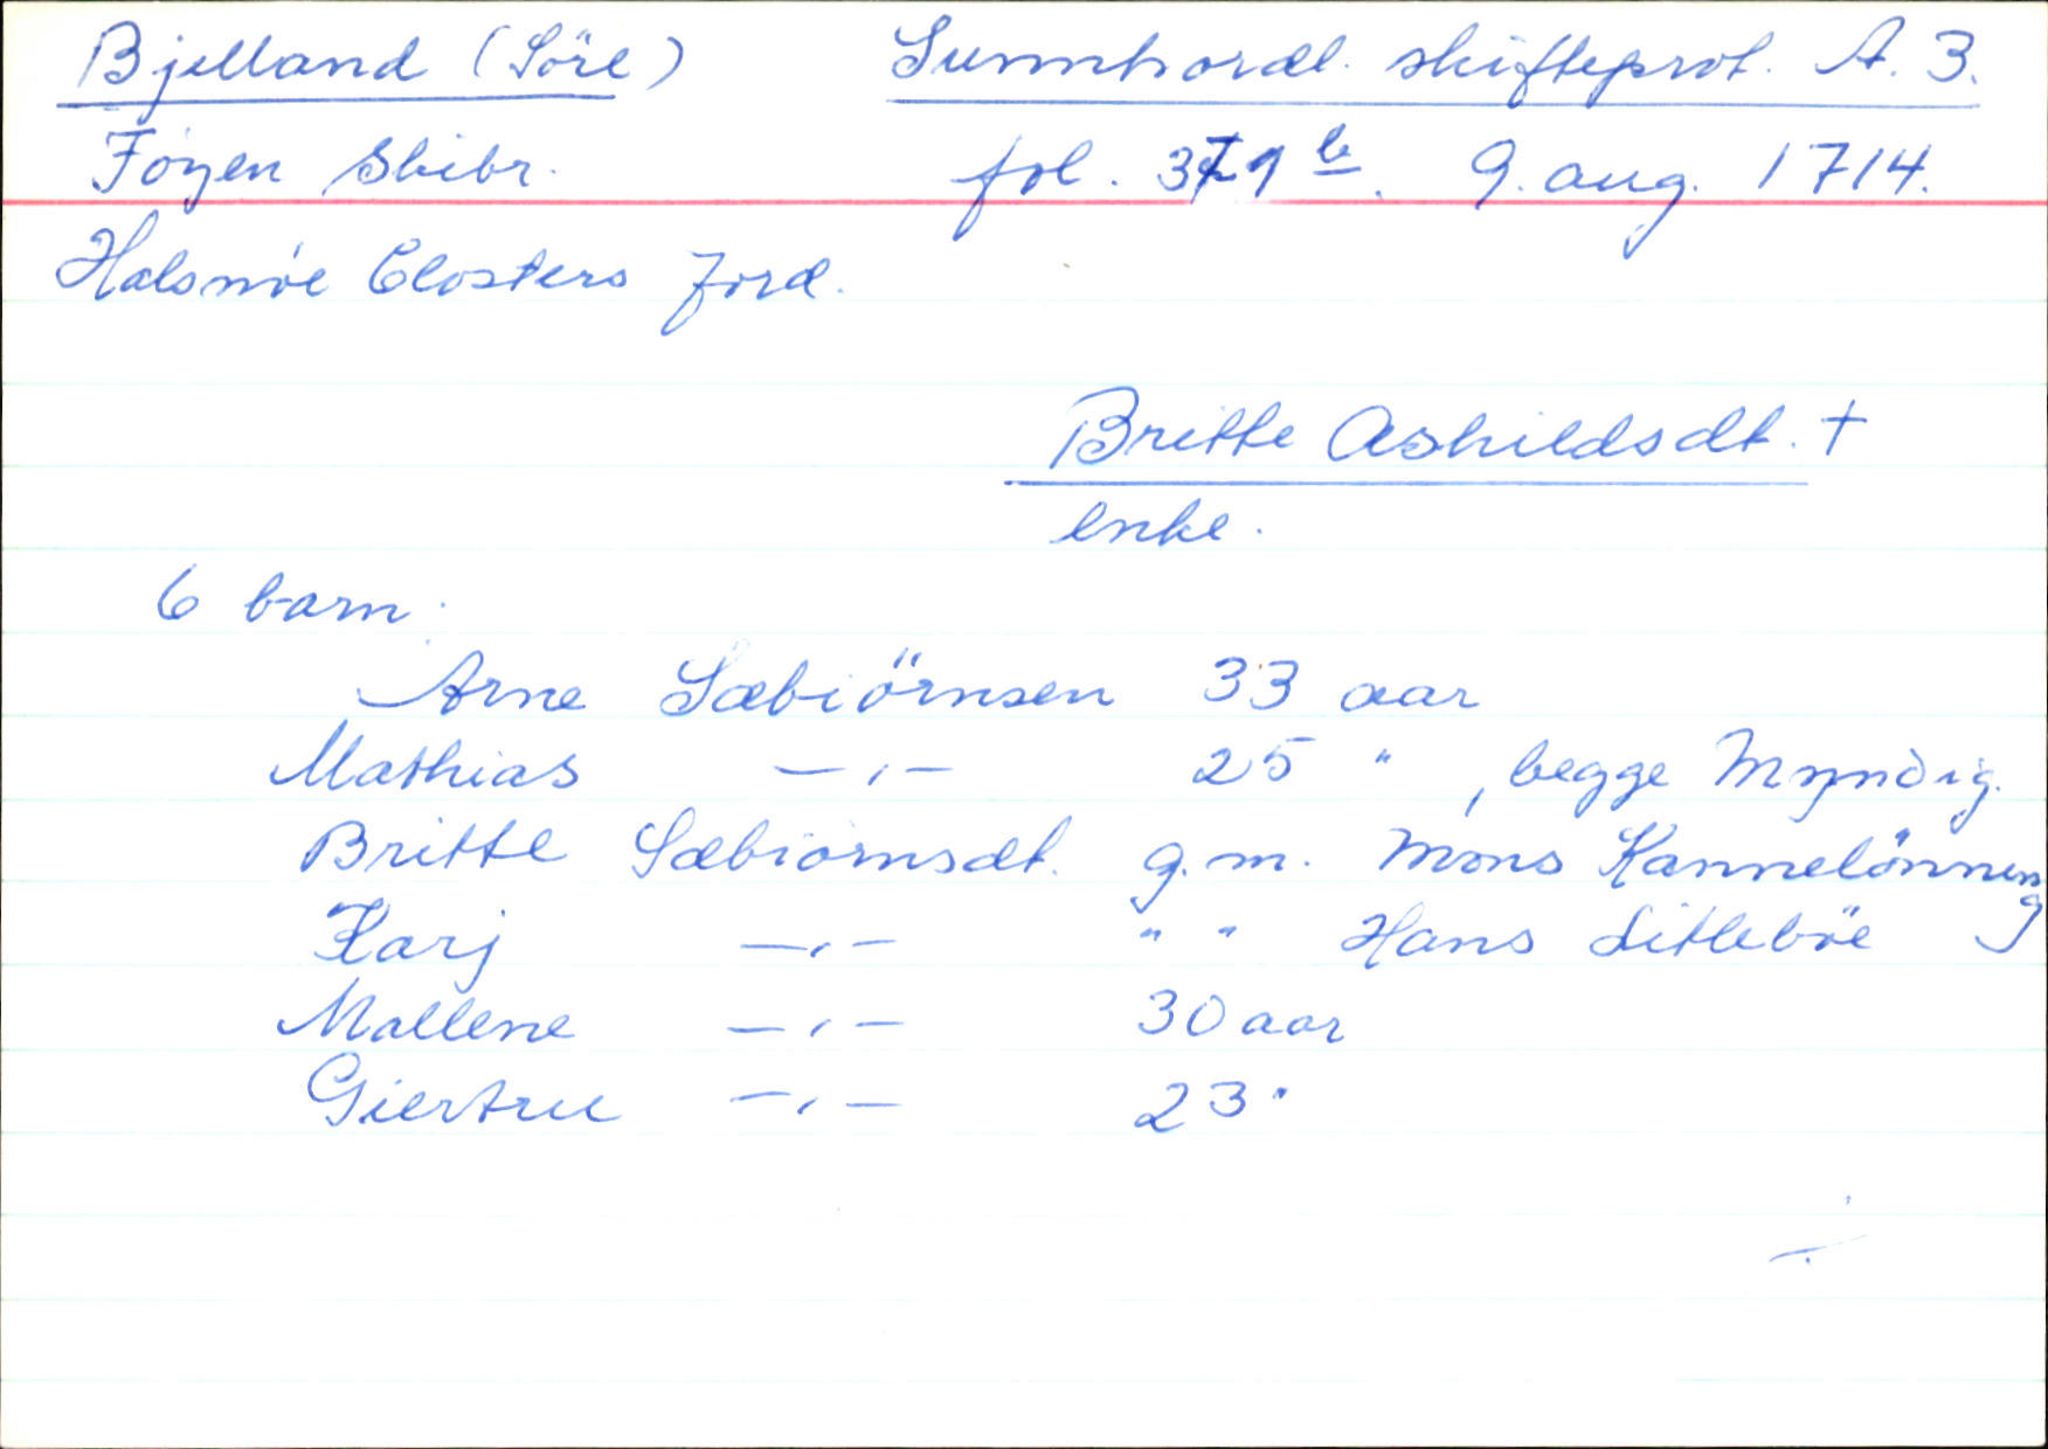 Bjelland (Söre) Sunnhordl. skifteprot. A. 3.
Föyen Skibr. fol. 371 b. 9. aug. 1714.
Halsnöe Closters Jord.
Britte Askildsdt. +
enke.
6 barn:
Arne Sæbiörnsen 33 aar
Mathias —"— 25 " , begge Myndig.
Britte Sæbiörnsdt. g. m. Mons Kannelönning
Karj —"— " " Hans Litleböe
Mallene —"— 30 aar
Giertru —"— 23 "